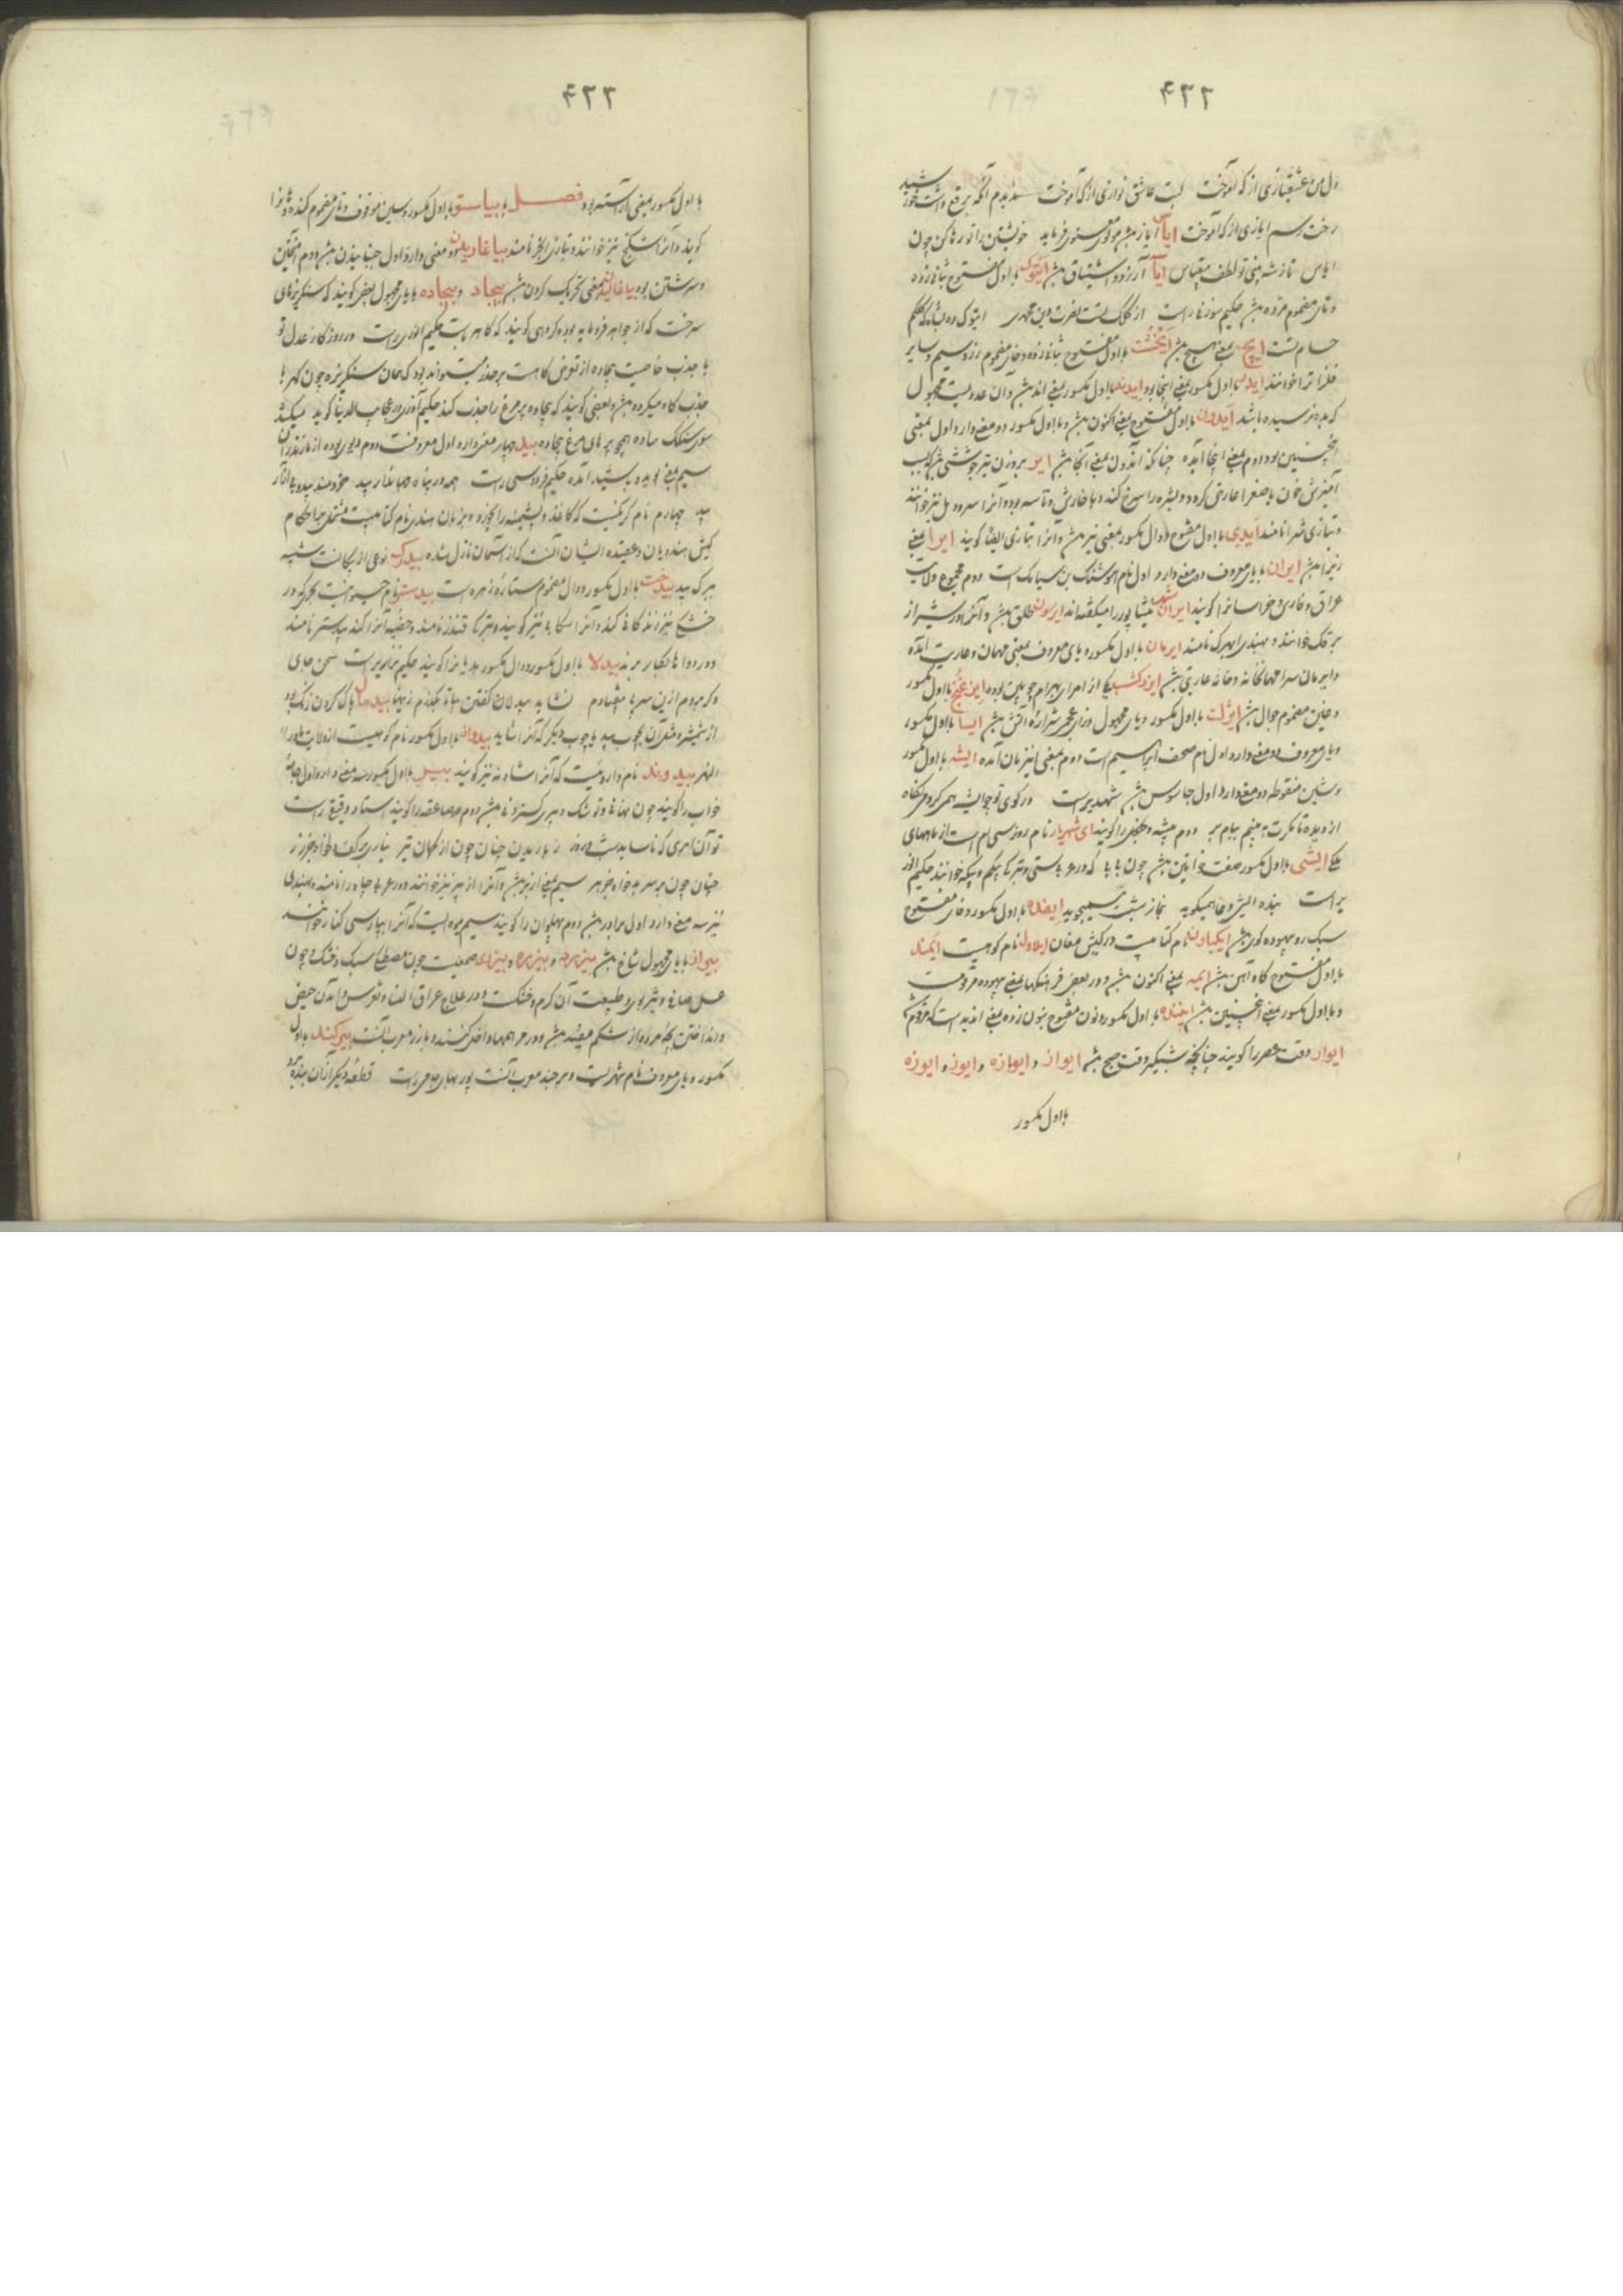 ۴۳۲
دل من عشقبازی از که آموخت لبت عاشق نوازی از که آموخت ندیدم آنکه برقع داشت خورشید
رخت رسم ایازی از که آموخت ایاس ایاز باشد مولوی معنوی فرماید خویشتن را تو رها کن چون
ایاس تو لطف بقیاس ایآ آرزو و اشتیاق باشد ایتوک با اول مفتوح بثانی زده
و تای مضموم مژده باشد حکیم سوزنی راست از کلک تست نصرت دین محمدی ایتوک ده بشاه که کلکم
حسام تست ایچ بمعنی هیچ باشد ایخشت با اول مفتوح بثانی زده و خای مضموم زر و سیم و سایر
فلزات را خوانند ایدر با اول مکسور بمعنی اینجا بود ایدند با اول مکسور بمعنی اند باشد و آن عددیست مجهول
که بده نرسیده باشد ایدون با اول مفتوح بمعنی اکنون باشد و با اول مکسور دو معنی دارد اول بمعنی
همچنین بود دوم بمعنی اینجا آمده چنانکه آندون بمعنی آنجا باشد ایر بروزن تیر جوششی باشد که بسبب
آمیزش خون با صفرا عارض گردد و بشره را سرخ کند و با خارش و تاسه بود و آنرا سرده دل نیز خوانند
و بتازی شرا نامند ایدی با اول مفتوح و دال مکسور بمعنی نیز باشد و آنرا بتازی ایضا گویند ایرا بمعنی
زیرا باشد ایران با یای معروف دو معنی دارد اول نام هوشنگ بن سیامک است دوم مجموع ولایت
عراق و فارس و خراسان را گویند ایران شهر نیشاپور را میگفته اند ایرسون طلق باشد و آنرا در شیراز
برقک خوانند و بهندی ابهرک نامند ایرمان با اول مکسور و یای معروف بمعنی مهمان و عاریت آمده
و ایرمان سرا مهمانخانه و خانه عاریتی باشد ایزدگشسب یکی از امرای بهرام چوبین بوده ایزغنج با اول مکسور
و غین مضموم جوال باشد ایژک با اول مکسور و یای مجهول و زای عجمی شراره آتش باشد ایسا با اول مکسور
و یای معروف دو معنی دارد اول نام صحف ابراهیم است دوم بمعنی این زمان آمده ایشه با اول مکسور
و شین منقوطه دو معنی دارد اول جاسوس باشد شهید راست در کوی تو چو ایشه همی گردم ای نگاه
از دیده تا مگرت ببینم ببام بر دوم بیشه و جنگل را گویند ای شهریار نام روز سی ام است از ماههای
ملکی ایشی با اول مکسور صفت خواتین باشد چون بابا که در عربی ستی و بترکی بیکم و بیکه خوانند حکیم انور
یراست بنده ایشی دعا همیگوید ایفده با اول مکسور و فای مفتوح
سبک رو بیهوده گوی باشد ایکیاون نام کتابیست در کیش مغان ایلاول نام کوهیست ایمند
با اول مفتوح گاو آهن باشد ایمه بمعنی اکنون باشد و در بعضی فرهنگها بمعنی بیهوده مرقومست
و با اول مکسور بمعنی اینچنین باشد ایننده با اول مکسور و نون مفتوح بنون زده بمعنی ایند است که مرقوم شد
ایوار وقت عصر را گویند چنانچه شبگیر وقت صبح باشد ایواز و ایوازه و ایوز و ایوزه
با اول مکسور
۴۳۳
با اول مکسور بمعنی آراسته بود فصل با بیاستو با اول مکسور و سین موقوف و تای مضموم گنده دهان را
گویند و آنرا نیز خوانند و بتازی ابخر نامند بیاغاریدن دو معنی دارد اول خیسانیدن باشد دوم آمیختن
و سرشتن بود بیاغالیدن بمعنی تحریک کردن باشد بیجاد و بیجاده با یای مجهول بعضی گویند که سنگریزهای
سرخست که از جواهر فرومایه بود و گروهی گویند که کاهرباست حکیم انوری راست در روزگار عدل تو
با جذب خاصیت بیجاده از تعرض کاهست بر حذر میتواند بود که همان سنگریزه چون کهربا
جذب کاه میکرده باشد و بعضی گویند که بیجاده پر مرغ را جذب کند حکیم آذری در عجایب الدنیا گوید میکشد
سوی سنگک ساده همچو پرهای مرغ بیجاده بید چهار معنی دارد اول معروفست دوم دیوی بوده از مازندران
سیم بمعنی بوید و باشید آمده حکیم فردوسی راست همه در پناه جهاندار بید خردمند بید و بی آزار
بید چهارم نام کرمیست که کاغذ و پشمینه را بخورد و بزبان هندی نام کتابیست مشتمل بر احکام
کیش هندویان و عقیده ایشان آنست که از آسمان نازل شده بیدبرگ نوعی از پیکانست شبیه
ببرگ بید بیدخت با اول مکسور و دال مضموم ستاره زهره است بیدستر نام حیوانیست بحری که در
خشکی نیز زندگانی کند و آنرا سگ آبی نیز گویند و بترکی قندز نامند و خصیه آنرا گند بیدستر نامند
و در دواها بکار برند بیدلا با اول مکسور و دال مکسور هذیانرا گویند حکیم نزاری راست سخن جای
دگر بردم ازین سر با بیفتادم نشاید بیدلائی گفتن بیا تا بگذرم زینها بیدمال پاک کردن زنگ بود
از شمشیر و مثل آن بچوب بید یا چوب دیگر که آنرا شاید بیدواز با اول مکسور نام کوهیست از ولایت ماورا
النهر بیدوند نام داروئیست که آنرا شادنه نیز گویند بیر با اول مکسور سه معنی دارد اول جامه
خواب را گویند چون نهالی و توشک و هر گستردنی باشد دوم صاعقه را گویند استاد دقیقی راست
تو آن ابری که ناساید شب و روز ز باریدن چنان چون از کمان تیر نباری بر کف دلخواه جز زر
چنان چون بر سر بدخواه جز بیر سیم بمعنی از بر باشد و آنرا از بیر نیز خوانند و در عربی چاه را نامند و بهندی
نیز سه معنی دارد اول برادر باشد دوم پهلوان را گویند سیم میوه ایست که آنرا بپارسی کنار خوانند
بیراز با یای مجهول شاخ باشد بیرزد و بیرزه و بیرزی صمغیست چون مصطکی سبک و خشک و چون
عسل صافی و تیز بوی و طبیعت آن گرم و خشکست و در علاج عرق النسا و نقرس و راندن حیض
و انداختن بچه مرده از شکم مفید باشد و در مرهمها داخل کنند و بارزد معرب آنست بیرکند با اول
مکسور و یای معروف نام شهریست و بیرجند معرب آنست پور بهای جامی راست قطعه دیگر از آن بنده بود